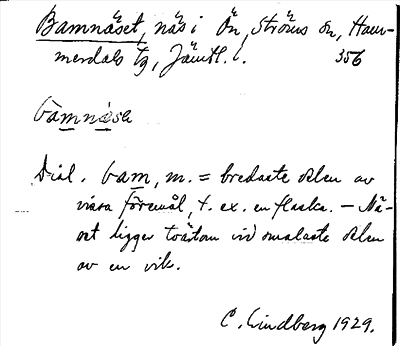 Bamnäset, näs i Ön, Ströms sn, Ham-
merdals tg, Jämtl. l. 356
bàmnǟsɛ
Dial. bam, m. = bredaste delen av
vissa föremål, t. ex. en flaska. – Nä-
set ligger tvärtom vid smalaste delen
av en vik.
C. Lindberg 1929.